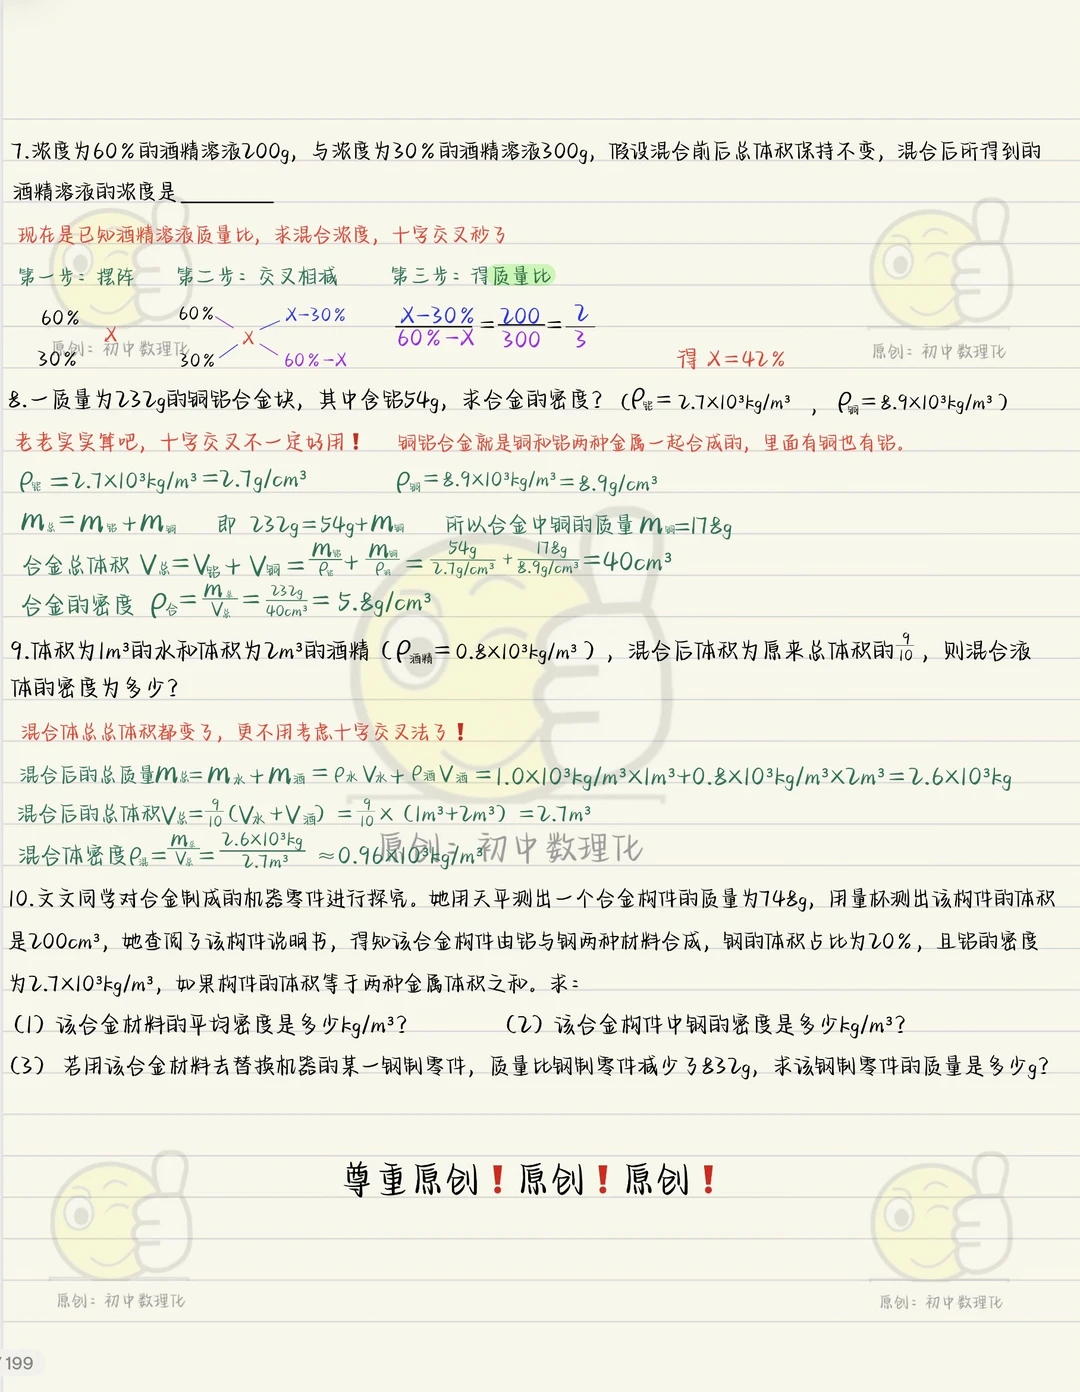 7.浓度为60%的酒精溶液200g，与浓度为30%的酒精溶液300g，假设混合前后总体积保持不变，混合后所得到的
酒精溶液的浓度是________
现在是已知酒精溶液质量比，求混合浓度，十字交叉秒了
第一步：摆阵 第二步：交叉相减 第三步：得质量比
60% X 30%
60% 30% X X-30% 60%-X
X-30%/60%-X=200/300=2/3
得 X=42%
8.一质量为232g的铜铝合金块，其中含铝54g，求合金的密度？（ρ铝=2.7×10³kg/m³ ，ρ铜=8.9×10³kg/m³）
老老实实算吧，十字交叉不一定好用❗ 铜铝合金就是铜和铝两种金属一起合成的，里面有铜也有铝。
ρ铝=2.7×10³kg/m³=2.7g/cm³ ρ铜=8.9×10³kg/m³=8.9g/cm³
m总=m铝+m铜 即 232g=54g+m铜 所以合金中铜的质量m铜=178g
合金总体积 V总=V铝+V铜=m铝/ρ铝+m铜/ρ铜=54g/2.7g/cm³+178g/8.9g/cm³=40cm³
合金的密度 ρ合=m总/V总=232g/40cm³=5.8g/cm³
9.体积为1m³的水和体积为2m³的酒精（ρ酒精=0.8×10³kg/m³），混合后体积为原来总体积的9/10，则混合液
体的密度为多少？
混合体总总体积都变了，更不用考虑十字交叉法了❗
混合后的总质量m总=m水+m酒=ρ水V水+ρ酒V酒=1.0×10³kg/m³×1m³+0.8×10³kg/m³×2m³=2.6×10³kg
混合后的总体积V总=9/10(V水+V酒)=9/10×（1m³+2m³）=2.7m³
混合体密度ρ混=m总/V总=2.6×10³kg/2.7m³≈0.96×10³kg/m³
10.文文同学对合金制成的机器零件进行探究。她用天平测出一个合金构件的质量为748g，用量杯测出该构件的体积
是200cm³，她查阅了该构件说明书，得知该合金构件由铝与钢两种材料合成，钢的体积占比为20%，且铝的密度
为2.7×10³kg/m³，如果构件的体积等于两种金属体积之和。求：
（1）该合金材料的平均密度是多少kg/m³？ （2）该合金构件中钢的密度是多少kg/m³？
（3） 若用该合金材料去替换机器的某一钢制零件，质量比钢制零件减少了832g，求该钢制零件的质量是多少g？
尊重原创❗原创❗原创❗
原创：初中数理化
原创：初中数理化
原创：初中数理化
原创：初中数理化
原创：初中数理化
/199